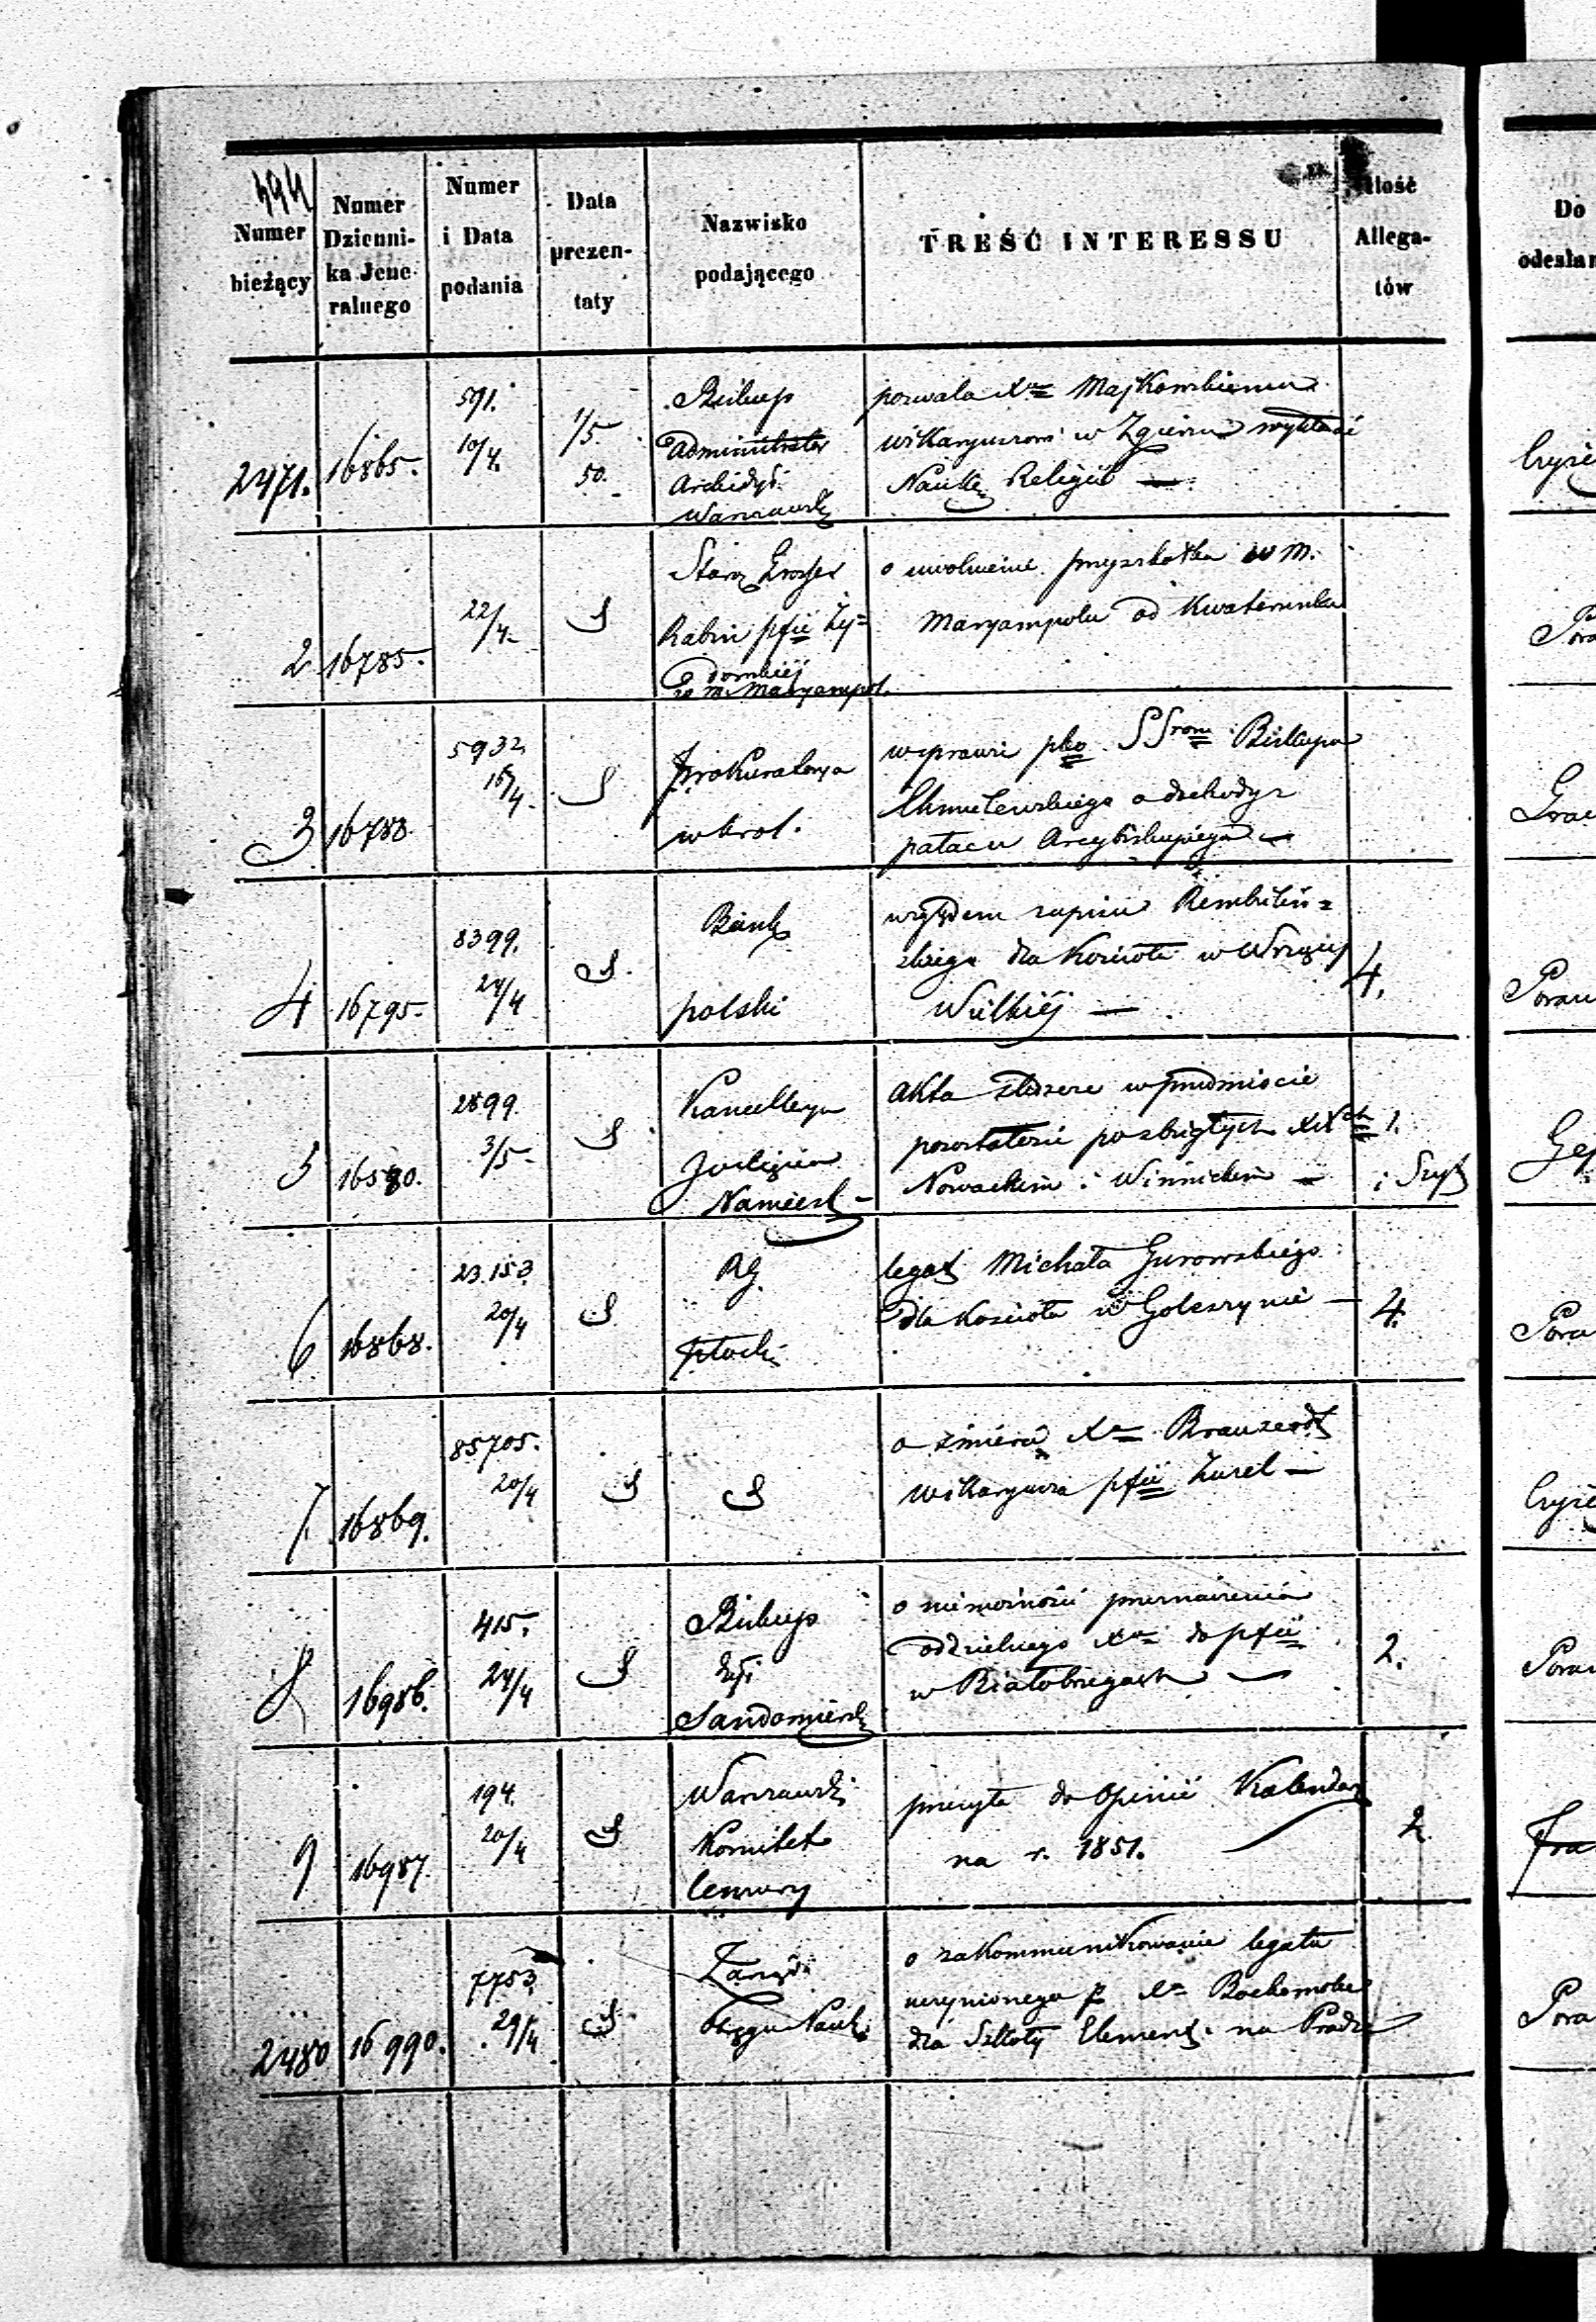 494
Numer bieżący
Numer Dzienni-ka Jene-ralnego
Numer i Data podania
Data prezen-taty
Nazwisko podającego
TREŚĆ INTERESSU
Ilość Allega-tów
Do
odesłan
2471. 16865. 591. 10/4. 1/5 50.
Biskup
Administrator
Archidy.
Warszawski
pozwala Xu Majkowskiemu
wikaryuszowi w Zgierzu wykładać
Naukę Religii —
2 16785. 22/4. S
Starz.
Rabin pfii Ży=
dowskiéj
w m. Maryampol.
o uwolnienie przyszkółka w m.
Maryampolu od Kwaterunku
3 16788. 5932 16/4. S
Prokuratorya
w Król.
w sprawie pko SSrom Biskupa
Chmielewskiego o dochody z
pałacu Arcybiskupiego —
4 16795. 8399. 24/4 S.
Bank
polski
względem zapisu Rembieliń=
skiego dla Kościoła w
Wielkiéj —
4.
5 16580. 2899. 3/5 S
Kancellarya
Xięcia
Namiest
akta śledcze w przedmiocie
pozostałości po zbiegłych XXch
Nowackim i Winnickim —
1.
i Szyt
6 16868. 23.153. 20/4 S
RG.
Płocki
legat Michała Gurowskiego
dla Kościoła w Goleszynie —
4.
7. 16869. 85705. 20/4 S S
o śmierci Xa
wikaryusza pfii Żurel —
8 16986. 415. 24/4 S
Biskup
Sandomierski
o niemożności przeznaczenia
oddzielnego Xa do pfii
w Białobrzegach —
2.
9 16987. 194. 20/4 S
Warszawski
Komitet
Cenzury
przesyła do Opinii Kalendarz
na r. 1851.
2
2480 16990. 7753. 29/4 S
Zarząd
Okręgu Nauk.
o zakommunikowanie legatu
uczynionego p. Xa
dla Szkoły Element. na Pradze